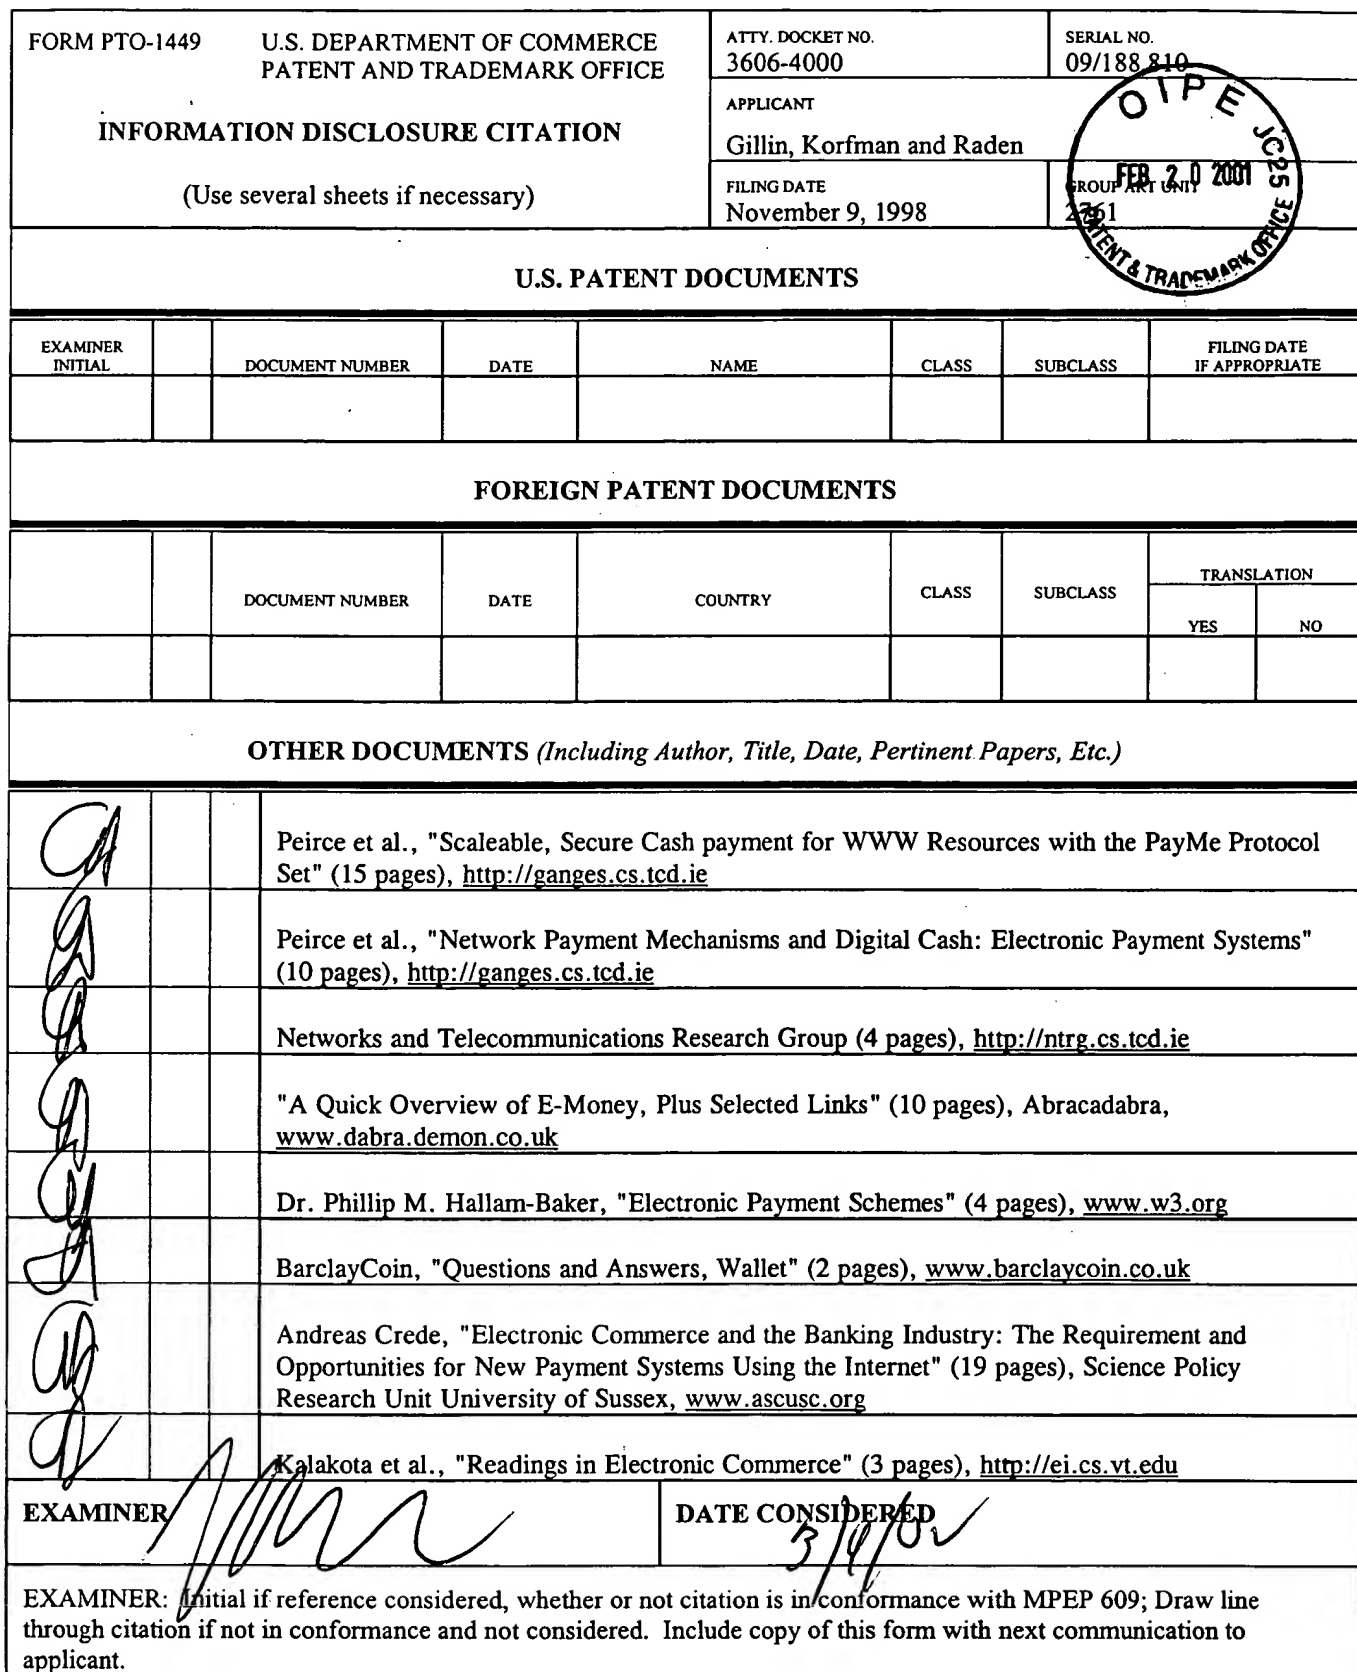 FORM PTO-1449
U.S. DEPARTMENT OF COMMERCE
PATENT AND TRADEMARK OFFICE
INFORMATION DISCLOSURE CITATION
(Use several sheets if necessary)
ATTY. DOCKET NO.
3606-4000
SERIAL NO.
09/188,810
APPLICANT
Gillin, Korfman and Raden
FILING DATE
November 9, 1998
GROUP ART UNIT
2761
OIPE JC25
FEB 20 2001
PATENT & TRADEMARK OFFICE
U.S. PATENT DOCUMENTS
EXAMINER INITIAL DOCUMENT NUMBER DATE NAME CLASS SUBCLASS FILING DATE IF APPROPRIATE
FOREIGN PATENT DOCUMENTS
DOCUMENT NUMBER DATE COUNTRY CLASS SUBCLASS TRANSLATION
YES NO
OTHER DOCUMENTS (Including Author, Title, Date, Pertinent Papers, Etc.)
Peirce et al., "Scaleable, Secure Cash payment for WWW Resources with the PayMe Protocol
Set" (15 pages), http://ganges.cs.tcd.ie
Peirce et al., "Network Payment Mechanisms and Digital Cash: Electronic Payment Systems"
(10 pages), http://ganges.cs.tcd.ie
Networks and Telecommunications Research Group (4 pages), http://ntrg.cs.tcd.ie
"A Quick Overview of E-Money, Plus Selected Links" (10 pages), Abracadabra,
www.dabra.demon.co.uk
Dr. Phillip M. Hallam-Baker, "Electronic Payment Schemes" (4 pages), www.w3.org
BarclayCoin, "Questions and Answers, Wallet" (2 pages), www.barclaycoin.co.uk
Andreas Crede, "Electronic Commerce and the Banking Industry: The Requirement and
Opportunities for New Payment Systems Using the Internet" (19 pages), Science Policy
Research Unit University of Sussex, www.ascusc.org
Kalakota et al., "Readings in Electronic Commerce" (3 pages), http://ei.cs.vt.edu
EXAMINER
DATE CONSIDERED
EXAMINER: Initial if reference considered, whether or not citation is in conformance with MPEP 609; Draw line
through citation if not in conformance and not considered. Include copy of this form with next communication to
applicant.